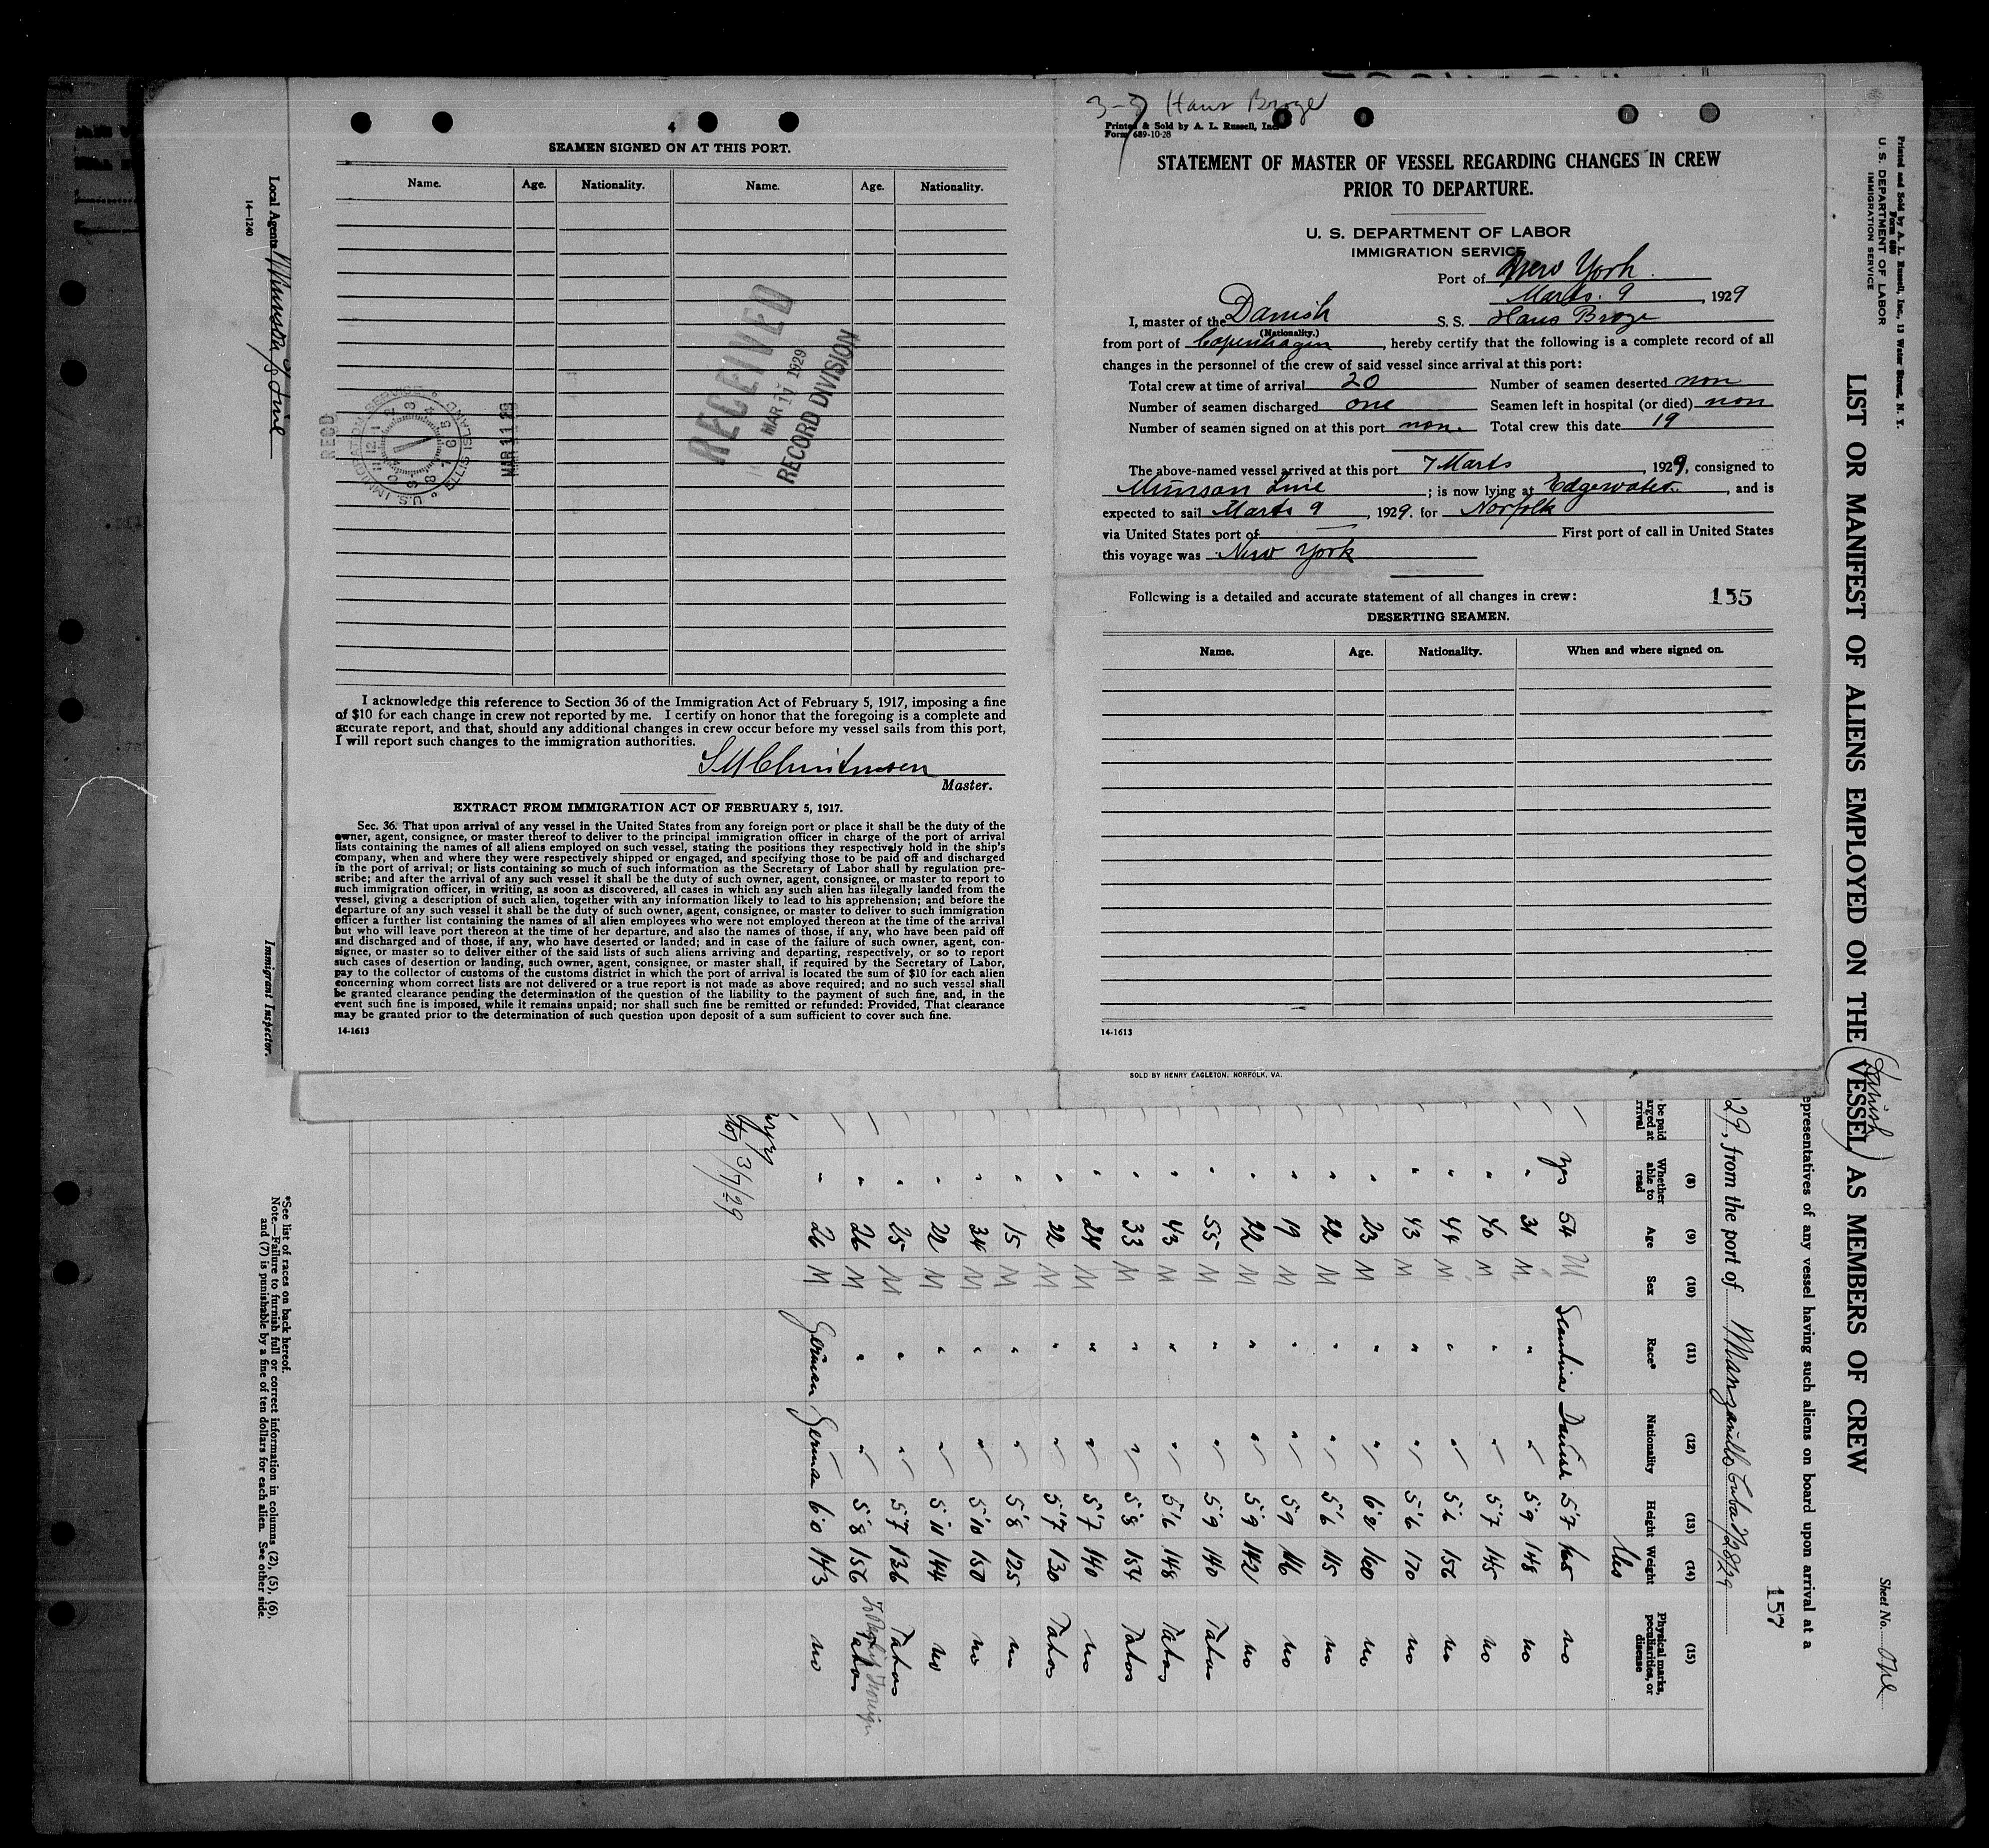 4
SEAMEN SIGNED ON AT THIS PORT.
Name. Age. Nationality. Name. Age. Nationality.
RECEIVED
MAR 11 1929
RECORD DIVISION
RECD
U.S. IMMIGRATION SERVICE ELLIS ISLAND
MAR 11 29
I acknowledge this reference to Section 36 of the Immigration Act of February 5, 1917, imposing a fine
of $10 for each change in crew not reported by me. I certify on honor that the foregoing is a complete and
accurate report, and that, should any additional changes in crew occur before my vessel sails from this port,
I will report such changes to the immigration authorities.
Master.
EXTRACT FROM IMMIGRATION ACT OF FEBRUARY 5, 1917.
Sec. 36. That upon arrival of any vessel in the United States from any foreign port or place it shall be the duty of the
owner, agent, consignee, or master thereof to deliver to the principal immigration officer in charge of the port of arrival
lists containing the names of all aliens employed on such vessel, stating the positions they respectively hold in the ship's
company, when and where they were respectively shipped or engaged, and specifying those to be paid off and discharged
in the port of arrival; or lists containing so much of such information as the Secretary of Labor shall by regulation pre-
scribe; and after the arrival of any such vessel it shall be the duty of such owner, agent, consignee, or master to report to
such immigration officer, in writing, as soon as discovered, all cases in which any such alien has illegally landed from the
vessel, giving a description of such alien, together with any information likely to lead to his apprehension; and before the
departure of any such vessel it shall be the duty of such owner, agent, consignee, or master to deliver to such immigration
officer a further list containing the names of all alien employees who were not employed thereon at the time of the arrival
but who will leave port thereon at the time of her departure, and also the names of those, if any, who have been paid off
and discharged and of those, if any, who have deserted or landed; and in case of the failure of such owner, agent, con-
signee, or master so to deliver either of the said lists of such aliens arriving and departing, respectively, or so to report
such cases of desertion or landing, such owner, agent, consignee, or master shall, if required by the Secretary of Labor,
pay to the collector of customs of the customs district in which the port of arrival is located the sum of $10 for each alien
concerning whom correct lists are not delivered or a true report is not made as above required; and no such vessel shall
be granted clearance pending the determination of the question of the liability to the payment of such fine, and, in the
event such fine is imposed, while it remains unpaid; nor shall such fine be remitted or refunded: Provided, That clearance
may be granted prior to the determination of such question upon deposit of a sum sufficient to cover such fine.
14-1613
3-7 Hans Broge
Printed & Sold by A. L. Russell, Inc.
Form 689-10-28
STATEMENT OF MASTER OF VESSEL REGARDING CHANGES IN CREW
PRIOR TO DEPARTURE.
U. S. DEPARTMENT OF LABOR
IMMIGRATION SERVICE
Port of New York
Marts. 9, 1929
I, master of the Danish S. S. Hans Broge
(Nationality.)
from port of Copenhagen, hereby certify that the following is a complete record of all
changes in the personnel of the crew of said vessel since arrival at this port:
Total crew at time of arrival 20 Number of seamen deserted non
Number of seamen discharged one Seamen left in hospital (or died) non
Number of seamen signed on at this port non. Total crew this date 19
The above-named vessel arrived at this port 7 Marts, 1929, consigned to
Munson Line; is now lying at Edgewater, and is
expected to sail Marts 9, 1929. for Norfolk
via United States port of First port of call in United States
this voyage was New York
Following is a detailed and accurate statement of all changes in crew:
155
DESERTING SEAMEN.
Name. Age. Nationality. When and where signed on.
14-1613
SOLD BY HENRY EAGLETON, NORFOLK, VA.
Printed and Sold by A. L. Russell, Inc., 13 Water Street, N. Y.
Form 680
U. S. DEPARTMENT OF LABOR
IMMIGRATION SERVICE
Sheet No. One
LIST OR MANIFEST OF ALIENS EMPLOYED ON THE VESSEL AS MEMBERS OF CREW
Danish
epresentatives of any vessel having such aliens on board upon arrival at a
157
29, from the port of Manzanillo Cuba 2/28/29
be paid arged at rrival
(8) Whether able to read
(9) Age
(10) Sex
(11) Race*
(12) Nationality
(13) Height
(14) Weight lbs
(15) Physical marks, peculiarities, or disease
yes 54 M Scandinav Danish 5'7 165 no
" 31 M " " 5'9 148 no
" 40 M " " 5'7 145 no
" 44 M " " 5'6 156 no
" 43 M " " 5'6 170 no
" 23 M " " 6'0 160 no
" 22 M " " 5'6 115 no
" 19 M " " 5'9 116 no
" 22 M " " 5'9 142 no
" 55 M " " 5'9 140 Tatos
" 43 M " " 5'6 148 Tatos
" 33 M " " 5'8 154 Tatos
" 24 M " " 5'7 140 no
" 22 M " " 5'7 130 Tatos
" 15 M " " 5'8 125 no
" 34 M " " 5'10 150 no
" 22 M " " 5'11 144 no
" 25 M " " 5'7 136 Tatos
" 26 M " " 5'8 156 Tatos
" 26 M German German 6'0 143 no
3/7/29
Local Agents Munson Line
14-1240
Immigrant Inspector.
*See list of races on back hereof.
Note.—Failure to furnish full or correct information in columns (2), (5), (6),
and (7) is punishable by a fine of ten dollars for each alien. See other side.